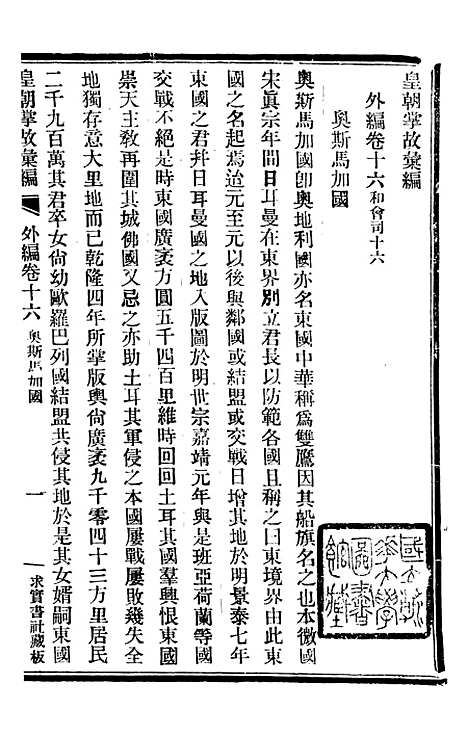 皇朝掌故彙編
外編卷十六和會司十六
奧斯馬加國
奧斯馬加國卽奧地利國亦名東國中華稱爲雙鷹因其船旗名之也本微國
宋眞宗年間日耳曼在東界別立君長以防範各國且稱之曰東境界由此東
國之名起焉迨元至元以後與鄰國或結盟或交戰日增其地於明景泰七年
東國之君幷日耳曼國之地入版圖於明世宗嘉靖元年與是班亞荷蘭等國
交戰不絕是時東國廣袤方圓五千四百里維時回回土耳其國羣興恨東國
崇天主敎再圍其城佛國又忌之亦助土耳其軍侵之本國屢戰屢敗幾失全
地獨存意大里地而已乾隆四年所掌版輿尙廣袤九千零四十三方里居民
二千九百萬其君卒女尙幼歐羅巴列國結盟共侵其地於是其女婿嗣東國
皇朝掌故彙編 外編卷十六 奧斯馬加國 一 求實書社藏板
國立北
平大學
圖書
館藏